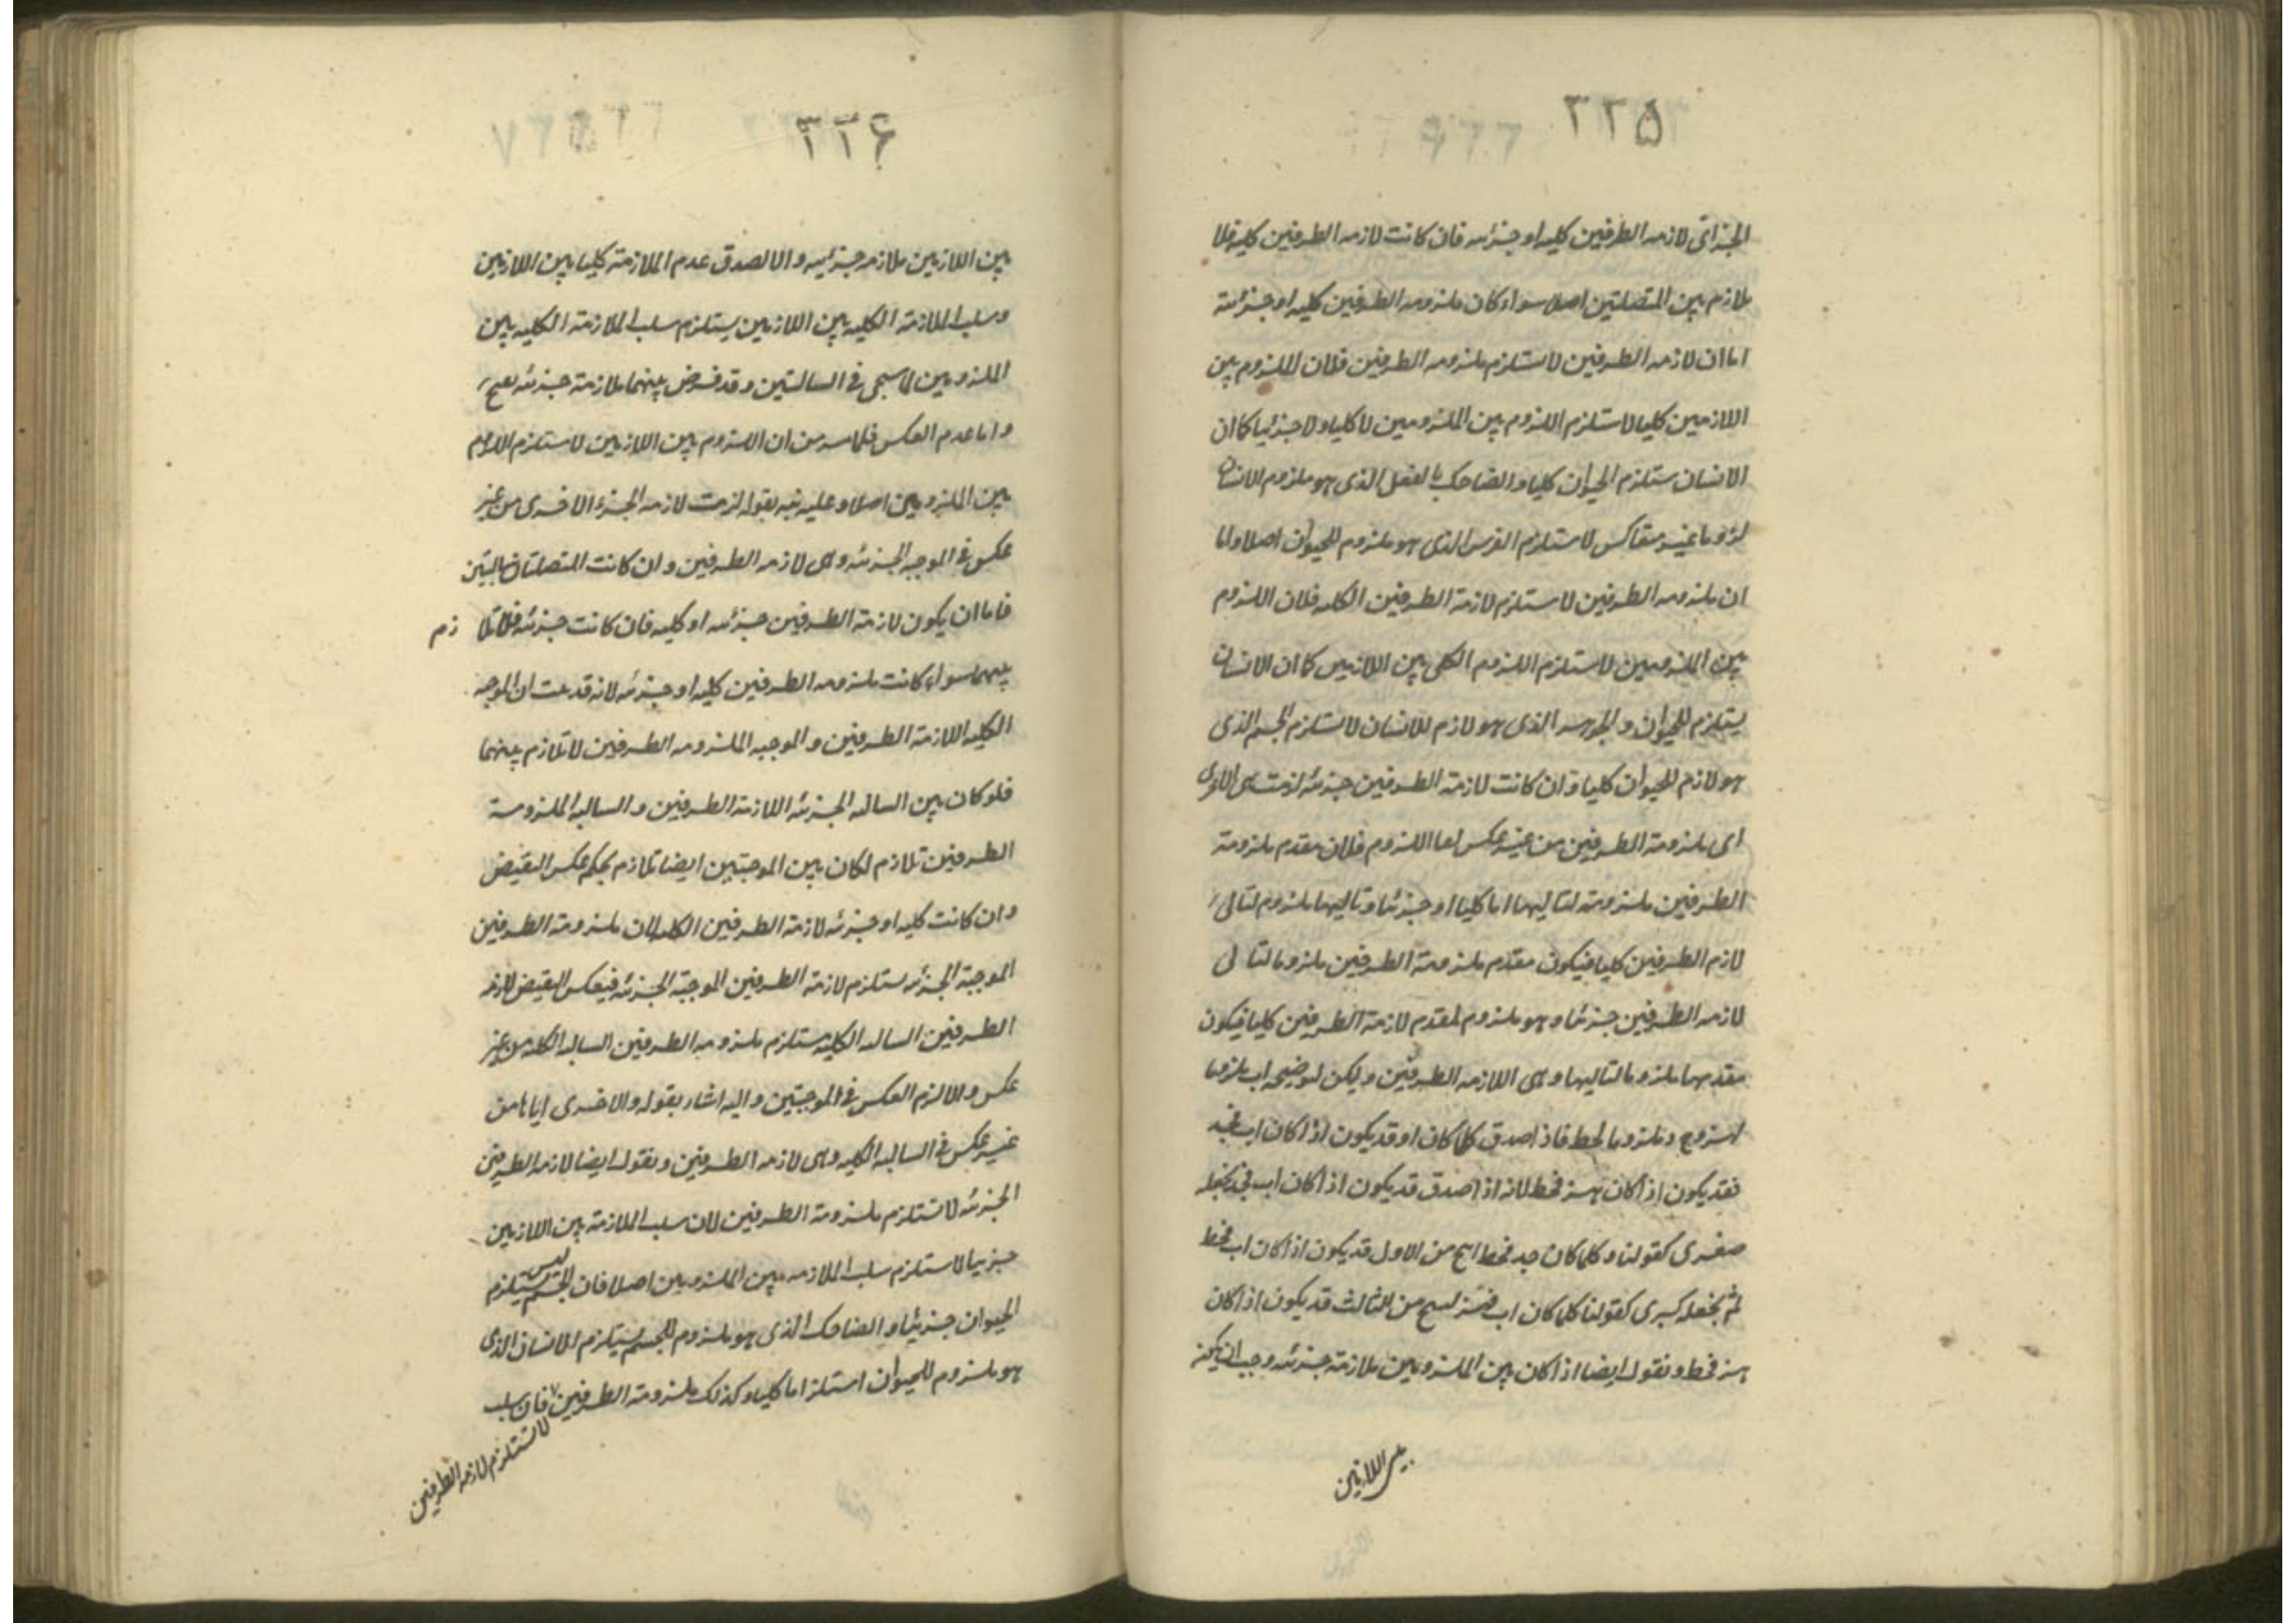 ٣٢٥
الجزاتى لازمه الطرفين كليه او جزئيه فان كانت لازمه الطرفين كليه فلا
ملازم بين المتصلتين اصلا سواء كان ملزومه الطرفين كليه او جزئية
اما ان لازمه الطرفين لا تستلزم ملزومه الطرفين فلان اللزوم بين
اللازمين كليا لا يستلزم اللزوم بين الملزومين لا كليا ولا جزئيا كما ان
الانسان يستلزم الحيوان كليا والضاحك بالفعل الذى هو ملزوم الانسان
لزوما غير متعاكس لا يستلزم الفرس الذى هو ملزوم للحيوان اصلا واما
ان ملزومه الطرفين لا تستلزم لازمة الطرفين الكليه فلان اللزوم
بين الملزومين لا يستلزم اللزوم الكلى بين اللازمين كما ان الانسان
يستلزم للحيوان والجوهر الذى هو لازم للانسان لا يستلزم الجسم الذى
هو لازم الحيوان كليا وان كانت لازمة الطرفين جزئيه لزمت هى الاخرى
اى ملزومة الطرفين من غير عكس اما اللزوم فلان مقدم ملزومة
الطرفين ملزومة لتاليها اما كليا او جزئيا وتاليها ملزوم لتالى
لازم الطرفين كليا فيكون مقدم ملزومة الطرفين ملزوما لتالى
لازمه الطرفين جزئيا وهو ملزوم لمقدم لازمة الطرفين كليا فيكون
مقدمها ملزوما لتاليها وهى اللازمه الطرفين وليكن لتوضيحه اب ملزوما
لهز وجد ملزوما لحط فاذا صدق كلما كان او قد يكون اذا كان اب فجد
فقد يكون اذا كان هز فحط لانه اذا صدق قد يكون اذا كان اب فجد نجعله
صغرى كقولنا وكلما كان جد فحط لينتج من الاول قد يكون اذا كان اب فحط
ثم نجعله كبرى كقولنا كلما كان اب فهز لينتج من الثالث قد يكون اذا كان
هز فحط ونقول ايضا اذا كان بين الملزومين ملازمة جزئيه وجب ان يكون
بين اللازمين
٣٢۶
بين اللازمين ملازمه جزئيه والا لصدق عدم الملازمة كليا بين اللازمين
وسلب الملازمة الكليه بين اللازمين يستلزم سلب الملازمة الكليه بين
الملزومين لما سيجى فى السالبتين وقد فرض بينهما ملازمة جزئيه
واما عدم العكس فلما مر من ان اللزوم بين اللازمين لا يستلزم اللزوم
بين الملزومين اصلا وعليه نبه بقوله لزمت لازمه الجزء الاخرى من غير
عكس فى الموجبه الجزئيه وهى لازمه الطرفين وان كانت المتصلتان سالبتين
فاما ان يكون لازمة الطرفين جزئيه او كليه فان كانت جزئيه فلا تلازم
بينهما سواء كانت ملزومه الطرفين كليه او جزئيه لانه قد ان الموجبه
الكليه اللازمة الطرفين والموجبه الملزومه الطرفين لا تلازم بينهما
فلو كان بين السالبه الجزئيه اللازمة الطرفين والسالبه الملزومة
الطرفين تلازم لكان بين الموجبتين ايضا تلازم بحكم عكس النقيض
وان كانت كليه او جزئيه لازمة الطرفين الكليه لان ملزومة الطرفين
الموجبة الجزئيه تستلزم لازمة الطرفين الموجبة الجزئيه فبعكس النقيض لازمه
الطرفين السالبه الكليه تستلزم ملزومه الطرفين السالبه الكليه من غير
عكس والا لزم العكس فى الموجبتين واليه اشار بقوله والاخرى اياها من
غير عكس فى السالبه الكليه وهى لازمه الطرفين ونقول ايضا لازمه الطرفين
الجزئيه لا تستلزم ملزومة الطرفين لان سلب الملازمة بين اللازمين
جزئيا لا يستلزم سلب الملازمه بين الملزومين اصلا فان الجسم ليس يستلزم
الحيوان جزئيا والضاحك الذى هو ملزوم للجسم يستلزم الانسان الذى
هو ملزوم للحيوان استلزاما كليا وكذلك ملزومة الطرفين فان سلب
لا تستلزم لازمه الطرفين